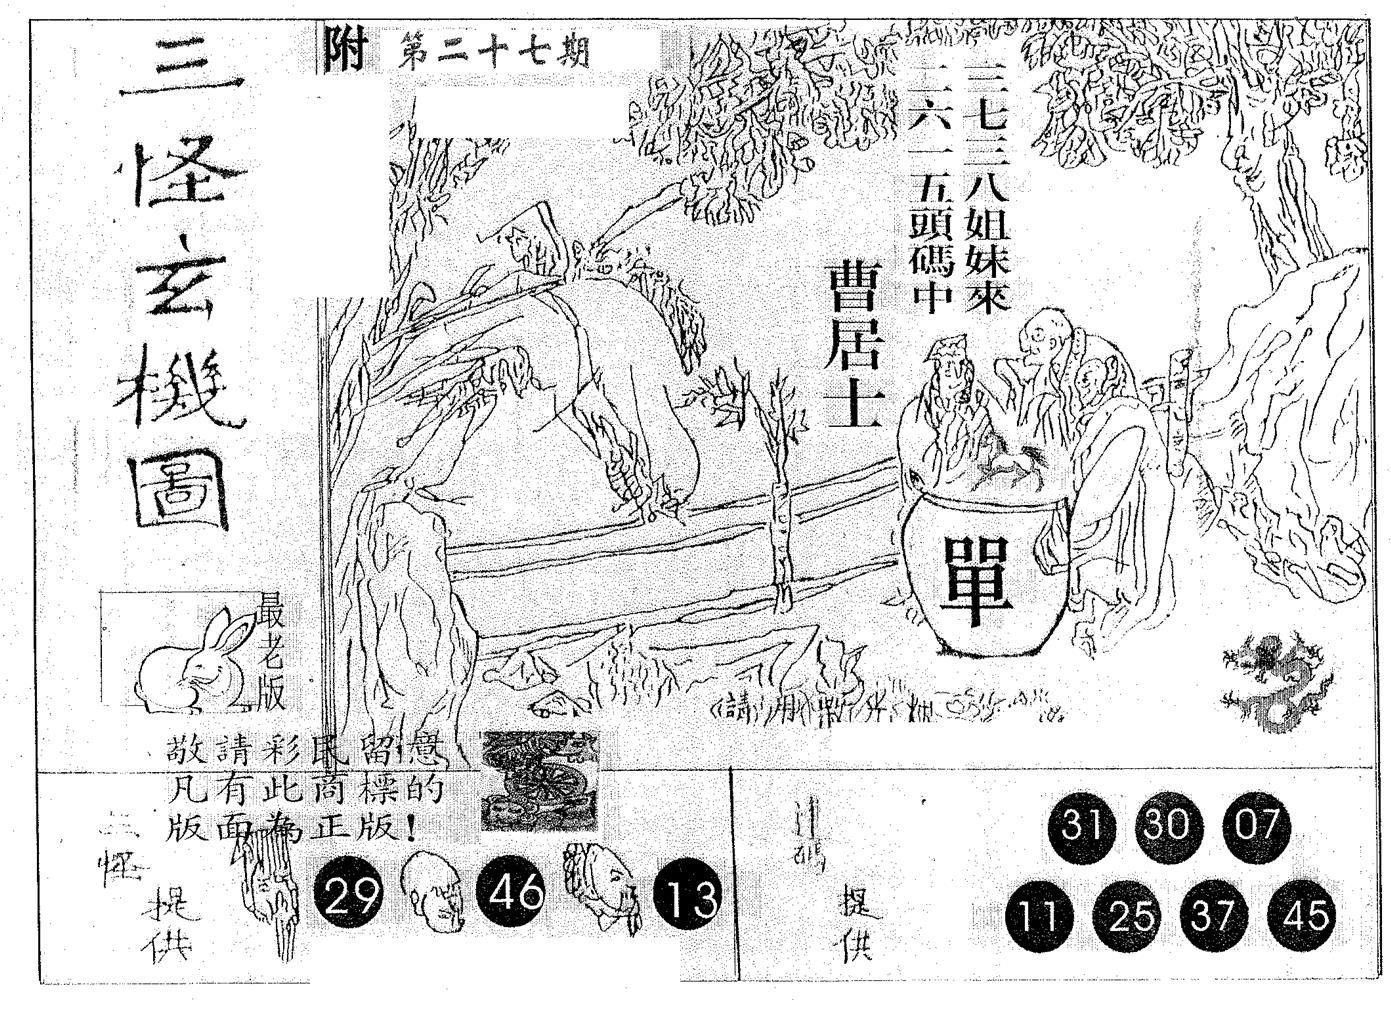 三怪玄機圖
附 第二十七期
三七三八姐妹來
二六一五頭碼中
曹居士
單
最老版
敬請彩民留意
凡有此商標的
版面為正版!
三怪
提供
29 46 13
提供
31 30 07
11 25 37 45